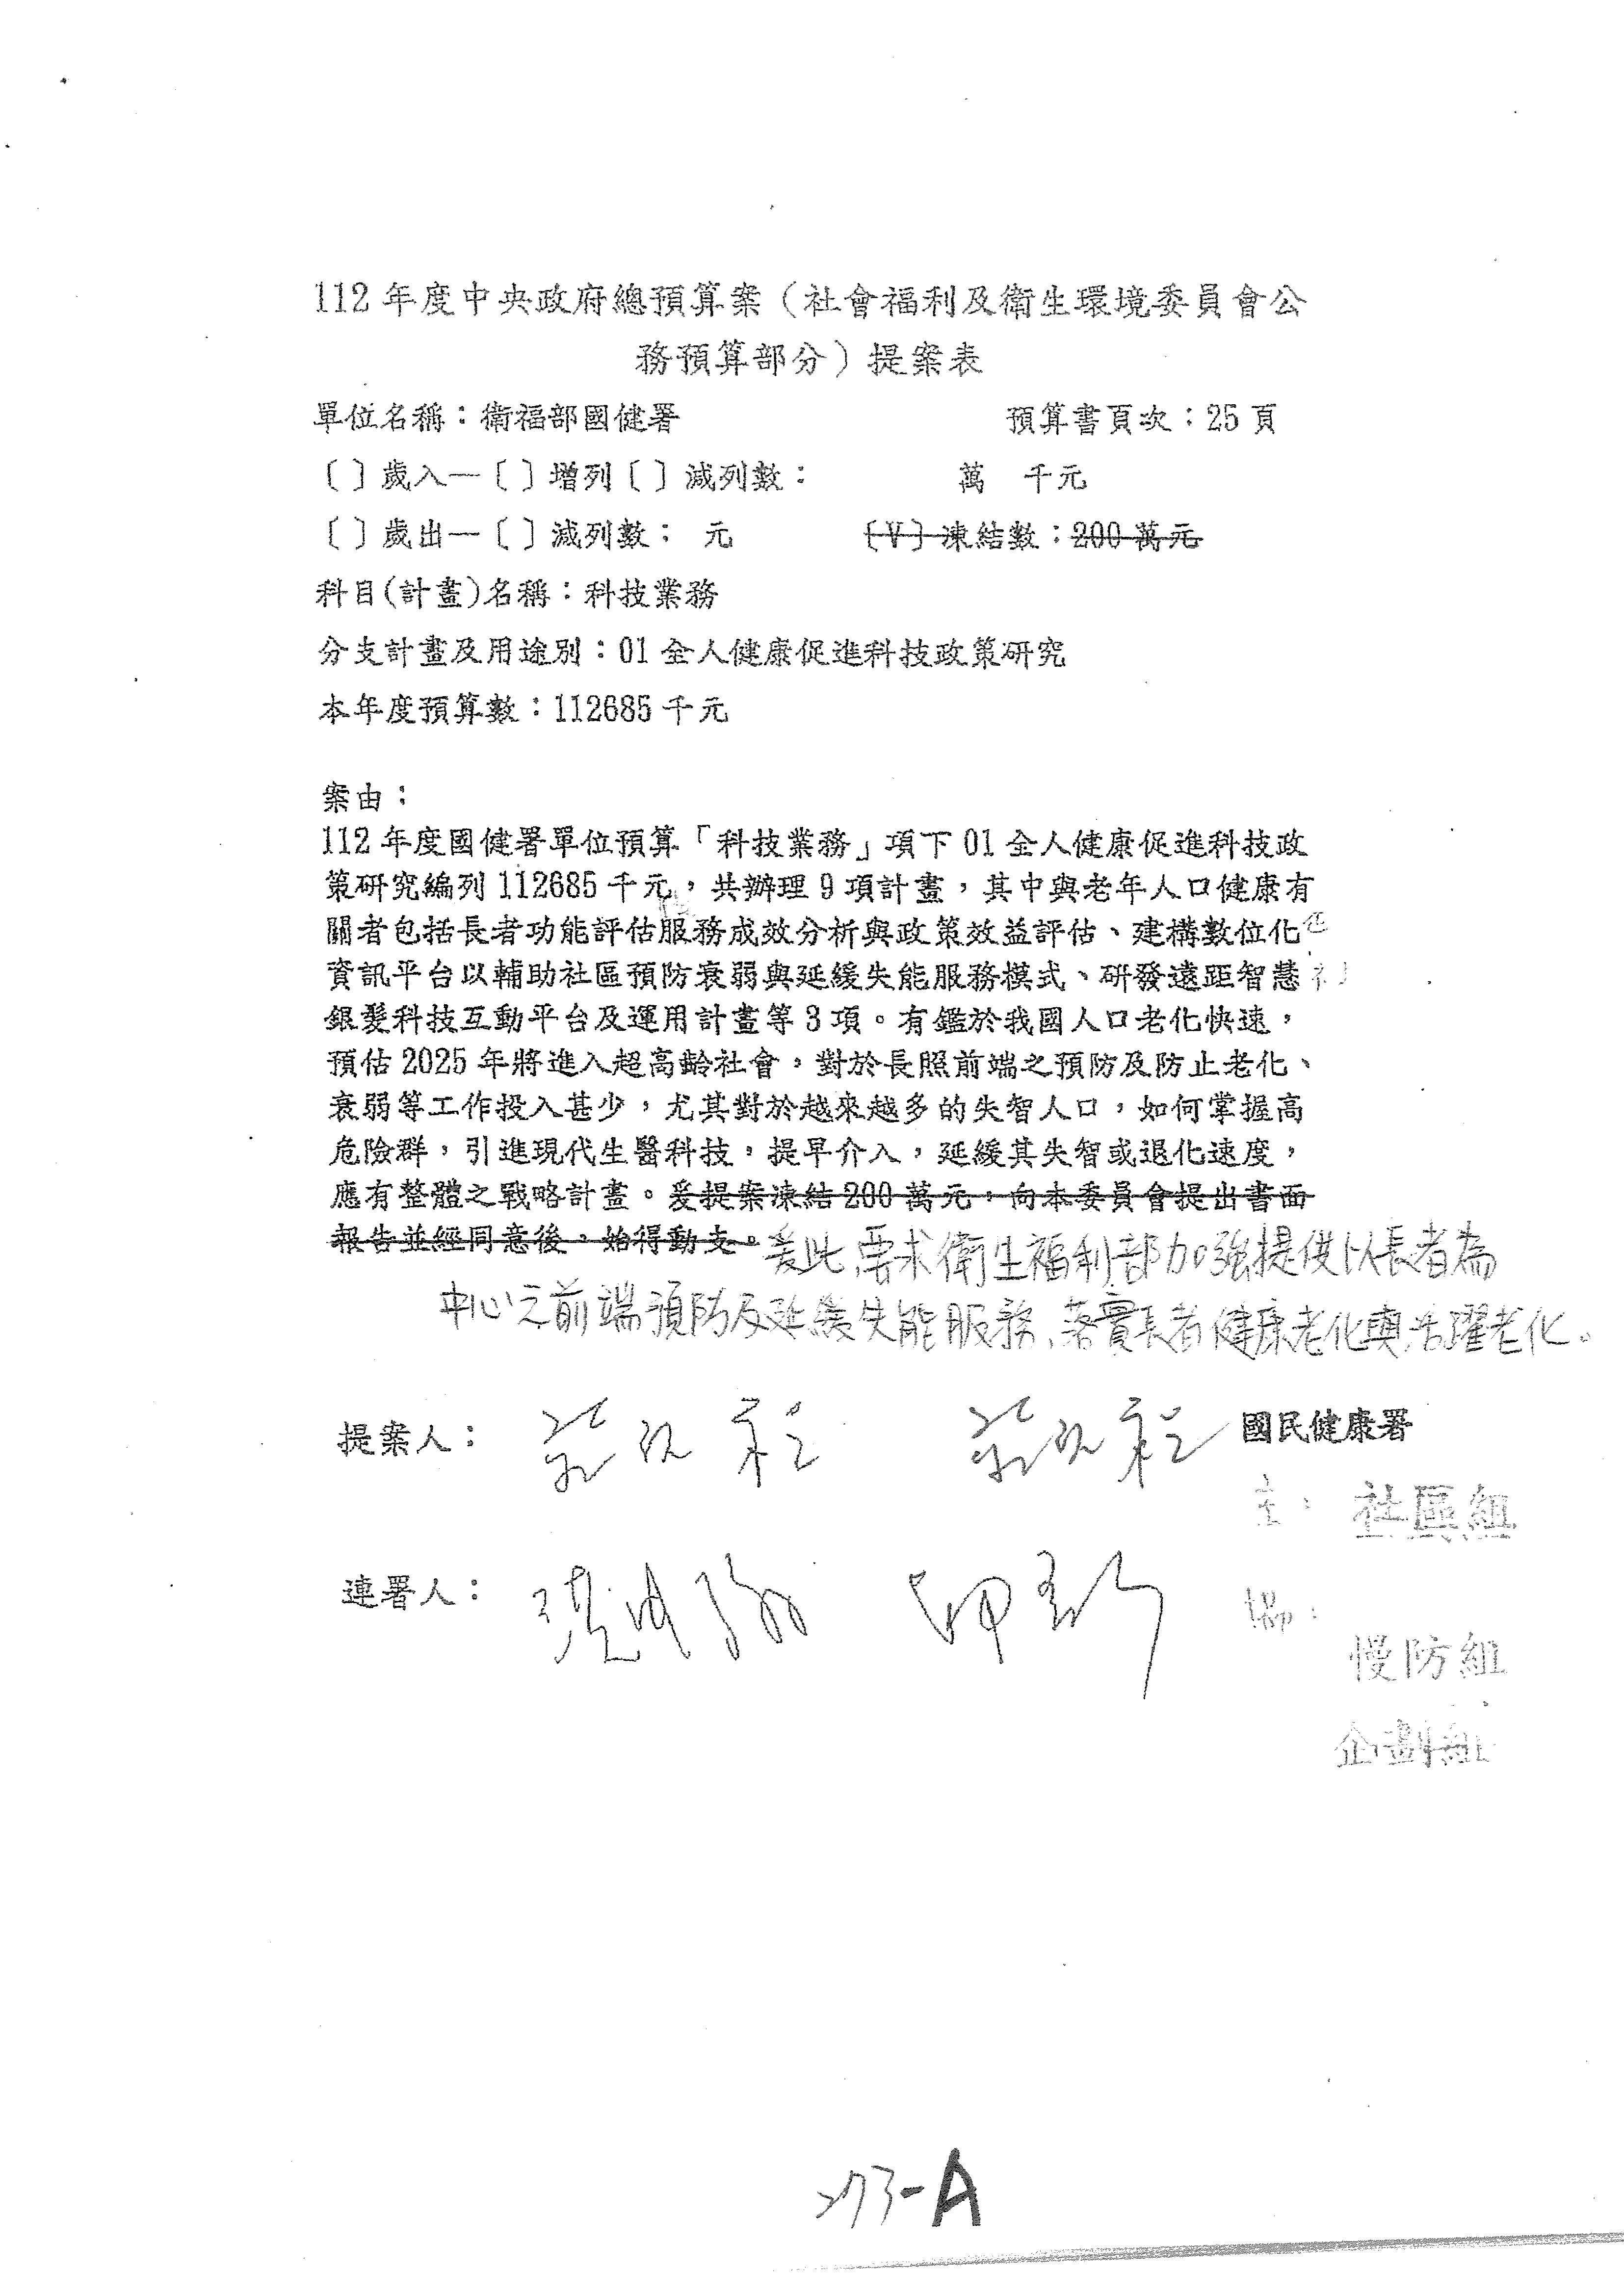 112年度中央政府總預算案（社會福利及衛生環境委員會公
務預算部分）提案表
單位名稱：衛福部國健署 預算書頁次：25頁
〔〕歲入—〔〕增列〔〕減列數： 萬 千元
〔〕歲出—〔〕減列數： 元 〔V〕凍結數：200萬元
科目(計畫)名稱：科技業務
分支計畫及用途別：01全人健康促進科技政策研究
本年度預算數：112685千元
案由：
112年度國健署單位預算「科技業務」項下01全人健康促進科技政
策研究編列112685千元，共辦理9項計畫，其中與老年人口健康有
關者包括長者功能評估服務成效分析與政策效益評估、建構數位化
資訊平台以輔助社區預防衰弱與延緩失能服務模式、研發遠距智慧
銀髮科技互動平台及運用計畫等3項。有鑑於我國人口老化快速，
預估2025年將進入超高齡社會，對於長照前端之預防及防止老化、
衰弱等工作投入甚少，尤其對於越來越多的失智人口，如何掌握高
危險群，引進現代生醫科技，提早介入，延緩其失智或退化速度，
應有整體之戰略計畫。爰提案凍結200萬元，向本委員會提出書面
報告並經同意後，始得動支。爰此，要求衛生福利部加強提供以長者為
中心之前端預防及延緩失能服務、落實長者健康老化與活躍老化。
提案人：
國民健康署
主：社區組
連署人：
協：
慢防組
企劃組
273-A